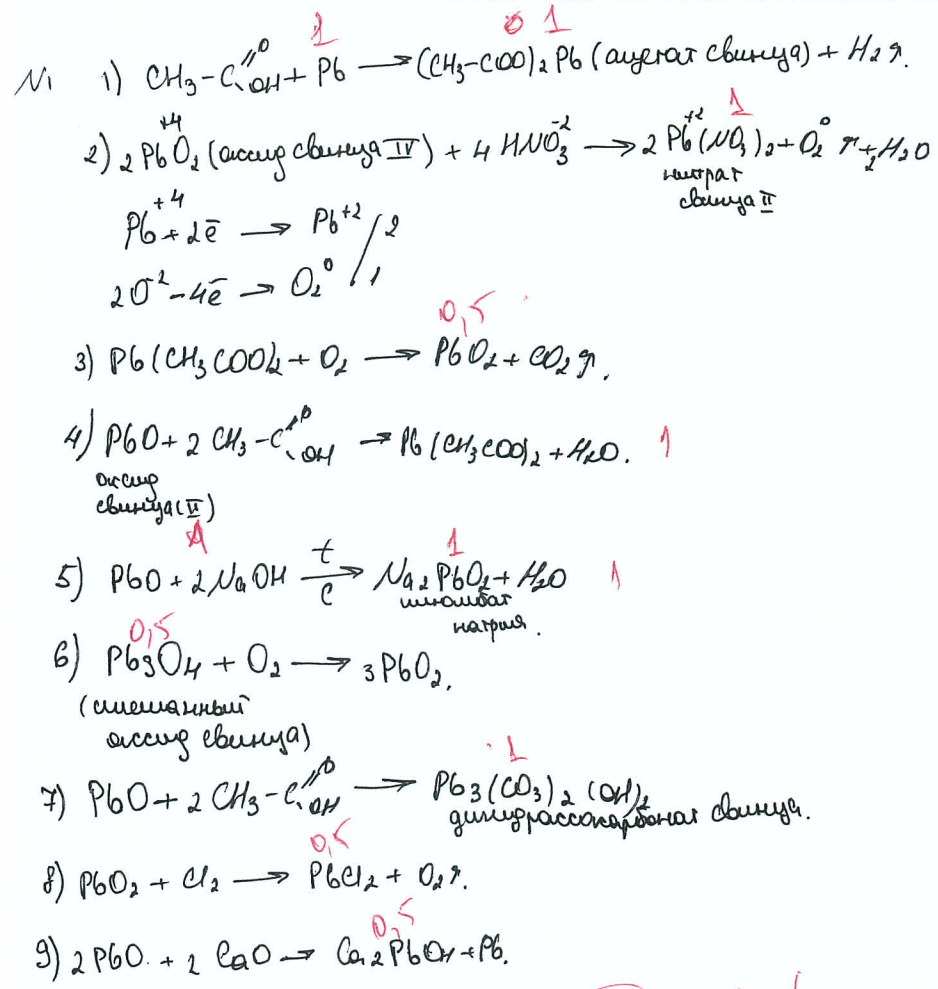 2 0 1
N1 1) CH₃-C(=O)OH + Pb → (CH₃-COO)₂Pb (ацетат свинца) + H₂↑.
1
2) 2Pb⁺⁴O₂ (оксид свинца IV) + 4HNO₃⁻² → 2Pb⁺²(NO₃)₂ + O₂⁰↑ + 2H₂O
нитрат
свинца II
Pb⁺⁴ + 2ē → Pb⁺² / 2
2O⁻² - 4ē → O₂⁰ / 1
0,5
3) Pb(CH₃COO)₂ + O₂ → PbO₂ + CO₂↑.
4) PbO + 2CH₃-C(=O)OH → Pb(CH₃COO)₂ + H₂O. 1
оксид
свинца (II)
1
5) PbO + 2NaOH →(t, C) Na₂PbO₂ + H₂O 1
плюмбат
натрия.
0,5
6) Pb₃O₄ + O₂ → 3PbO₂.
(смешанный
оксид свинца)
1
7) PbO + 2CH₃-C(=O)OH → Pb₃(CO₃)₂(OH)₂
дигидроксокарбонат свинца.
0,5
8) PbO₂ + Cl₂ → PbCl₂ + O₂↑.
0,5
9) 2PbO + 2CaO → Ca₂PbO₄ + Pb.